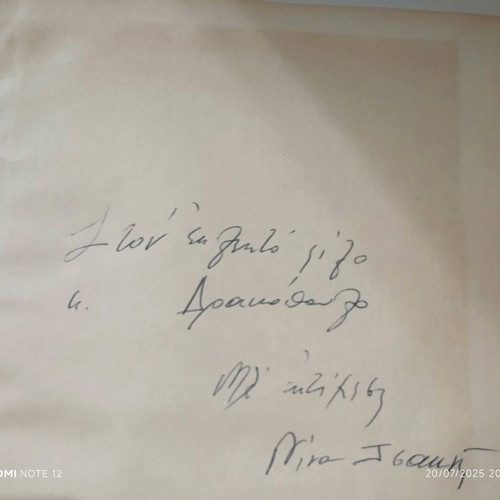 Στον εκλεκτό φίλο
κ. Δρακόπουλο
Με εκτίμηση
OMI NOTE 12
20/07/2025 20